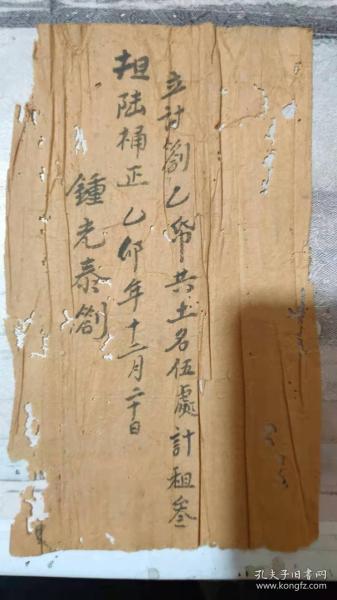 立討劄乙帋共土名伍處計租叁
担陆桶正乙卯年十二月二十日
鍾光泰劄
孔夫子旧书网